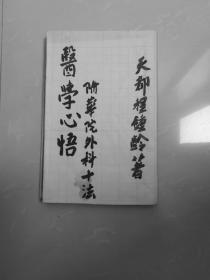 天都程鍾齡著
附華陀外科十法
醫學心悟